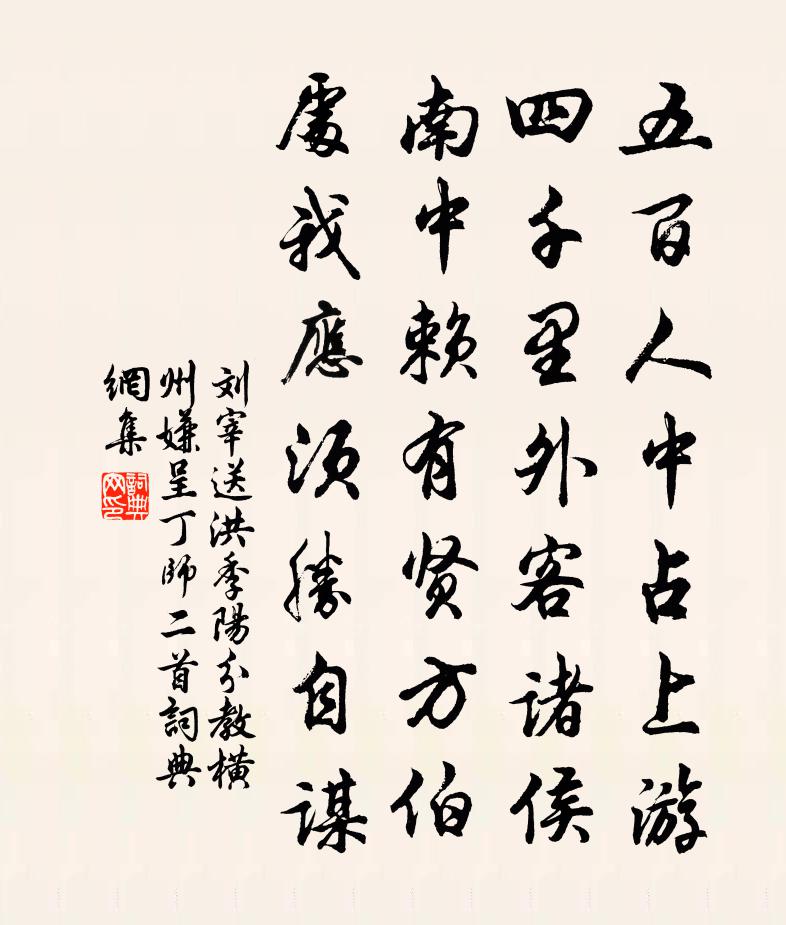 五百人中占上游
四千里外客诸侯
南中赖有贤方伯
處我應须勝自谋
刘宰送洪季陽分教横
州嫌呈丁師二首詞典
網集
詞典
网印